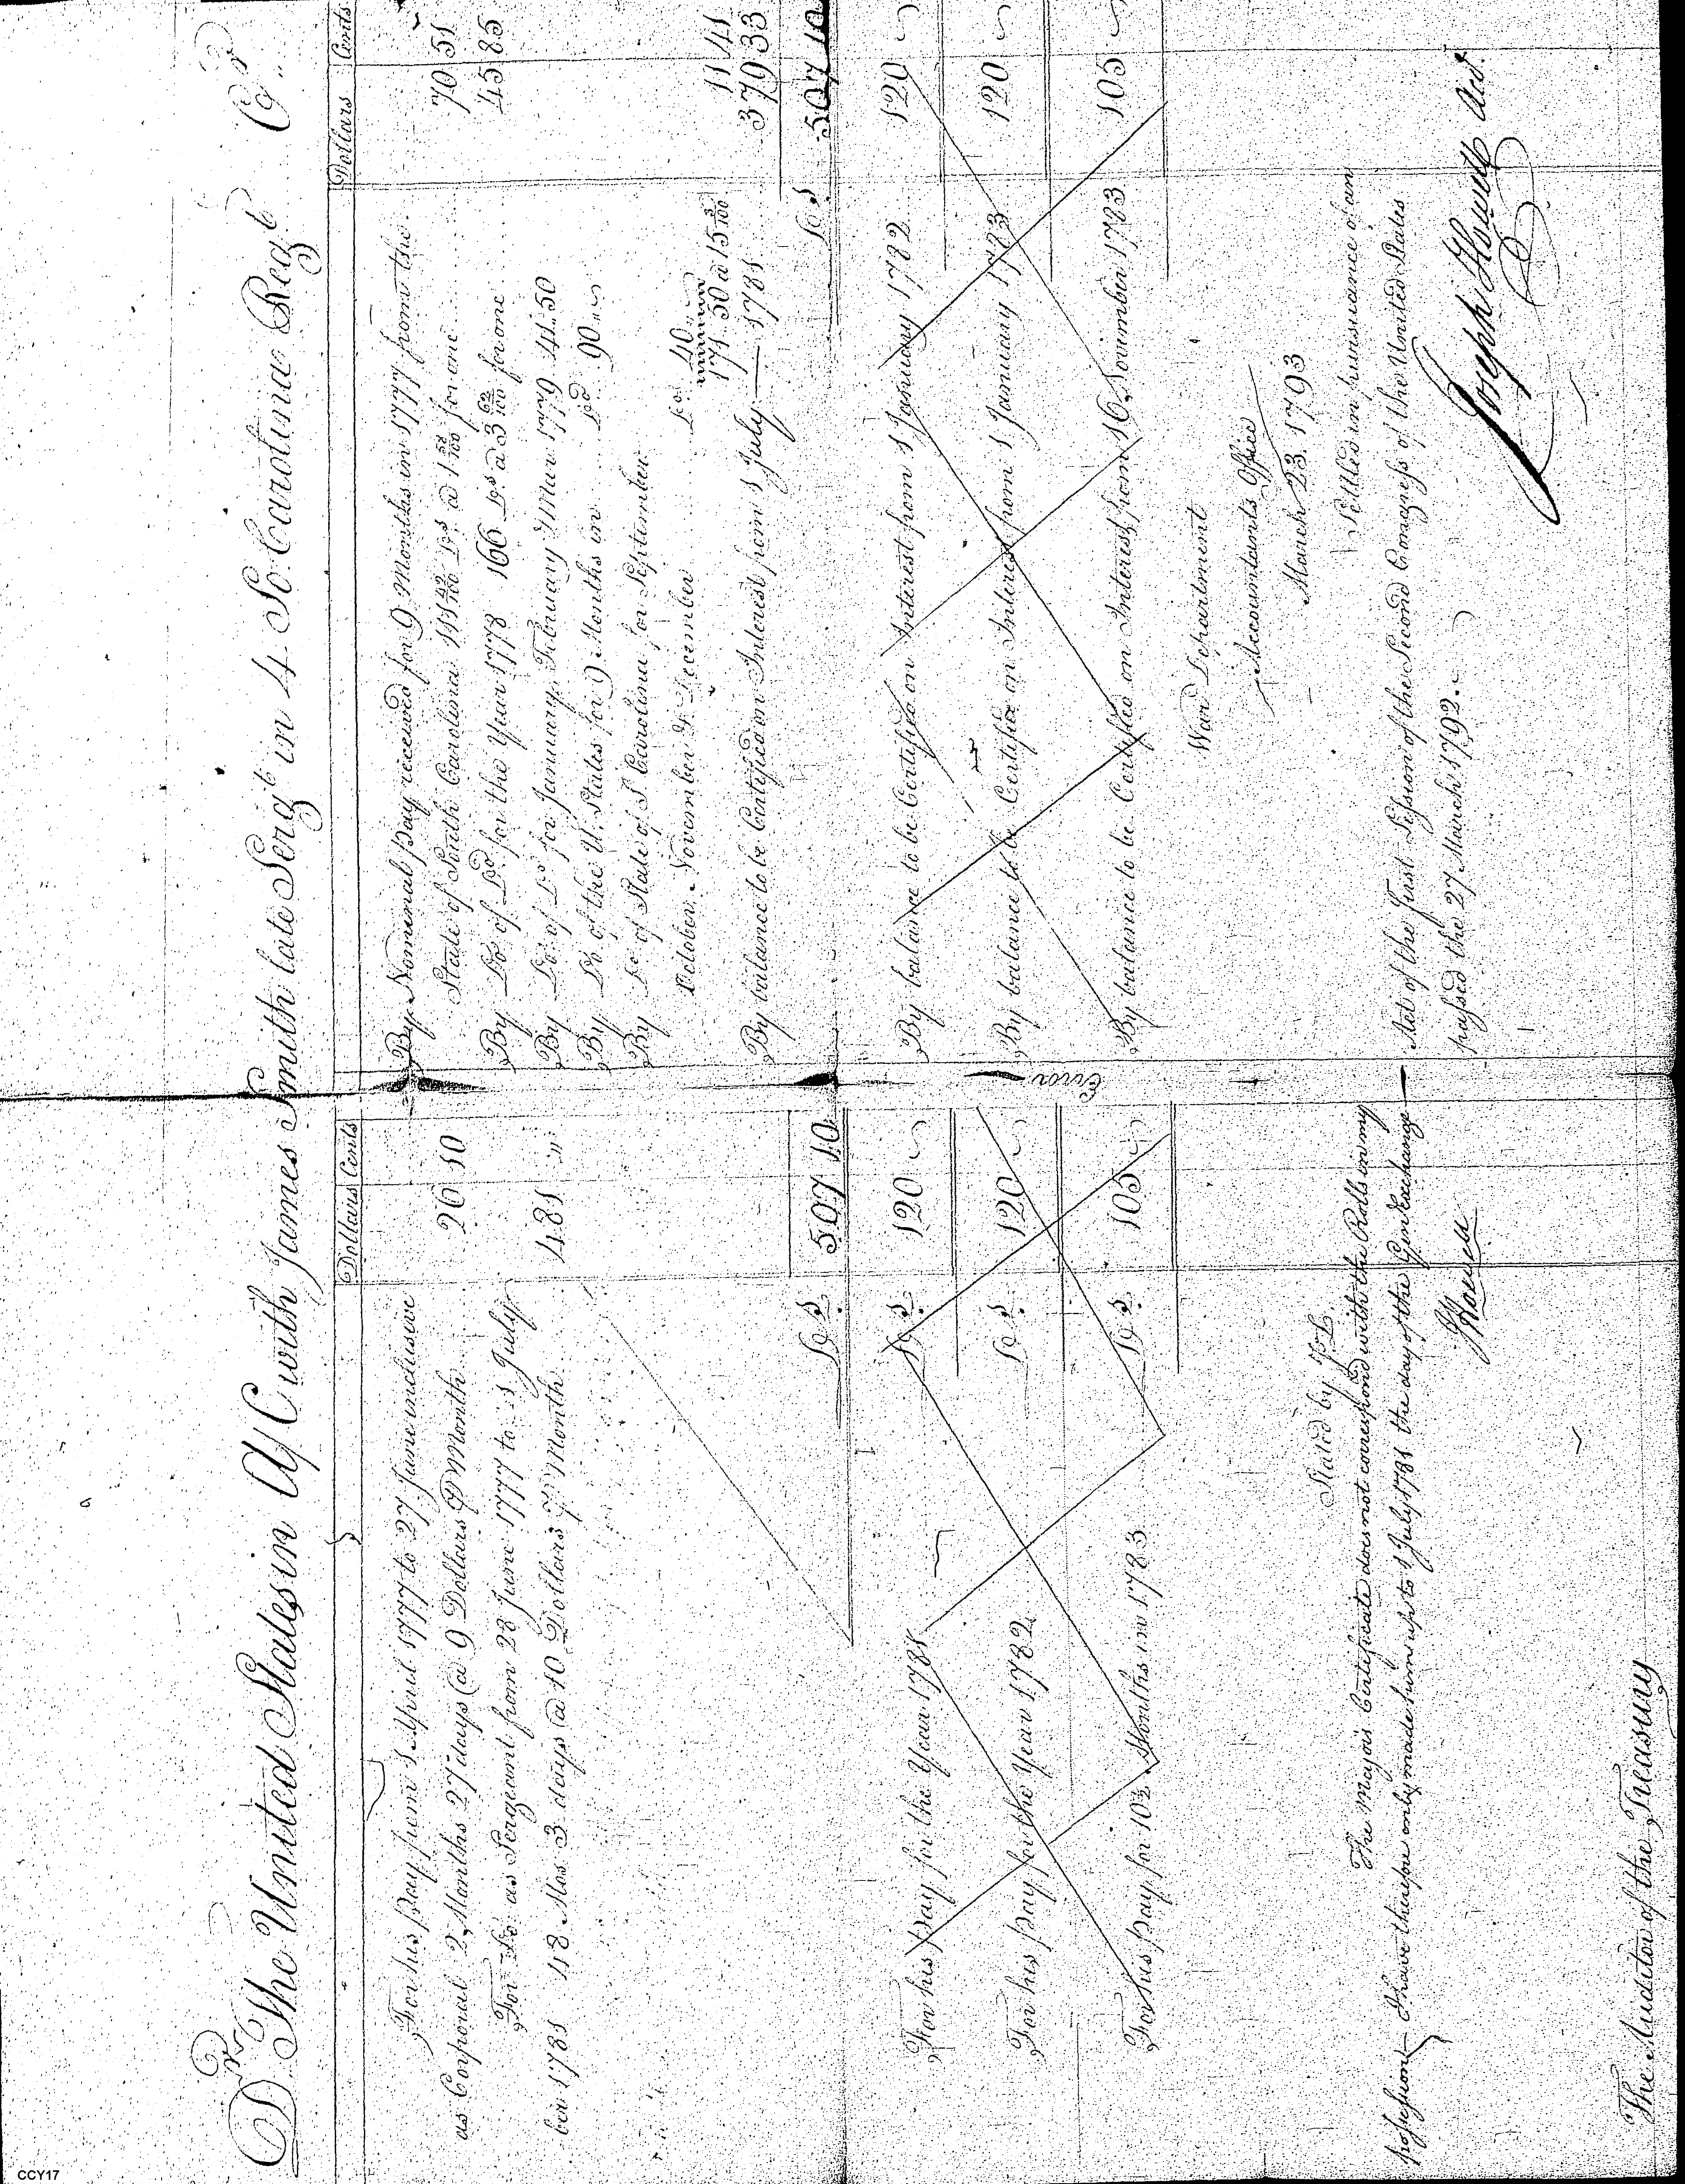 Dr The United States in A/C with James Smith late Sergt in 4 So Carolina Regt Cr
Dollars Cents
For his Pay from 1 April 1777 to 27 June inclusive
as Corporal 2 Months 27 days @ 9 Dollars P Month 26 10
For Do as Sergeant from 28 June 1777 to 1 July
1781 48 Mos 3 days @ 10 Dollars P Month 481 "
Dolls 507 10
For his pay for the Year 1781 Dolls 120
For his pay for the Year 1782 Dolls 120
For his pay for 10½ Months in 1783 Dolls 105
Stated by
The Majors Certificate does not correspond with the Rolls in my
possession I have therefore only made him up to 1 July 1781 the day of the Genl Exchange
J Howell
The Auditor of the Treasury
Error
Dollars Cents
By Nominal pay received for 9 Months in 1777 from the
State of South Carolina 111 42/100 Drs @ 1 58/100 for one 70 51
By Do of Do for the Year 1778 166 Drs @ 3 62/100 for one 45 85
By Do of Do for January, February & Mar 1779 41.50
By Do of the U. States for 9 Months in Do 90
By Do of State of S Carolina for September
October, November & December Do 40
171.50 @ 15 3/100 11 41
By balance to be Certified on Interest from 1 July 1781 379 33
Dolls 507 10
By balance to be Certified on Interest from 1 January 1782 120
By balance to be Certified on Interest from 1 January 1783 120
By balance to be Certified on Interest from 16 November 1783 105
War Department
Accountants Office
March 23. 1793
Settled in pursuance of an
Act of the first Session of the Second Congress of the United States
passed the 27 March 1792.
Joseph Howell Acct.
CCY17